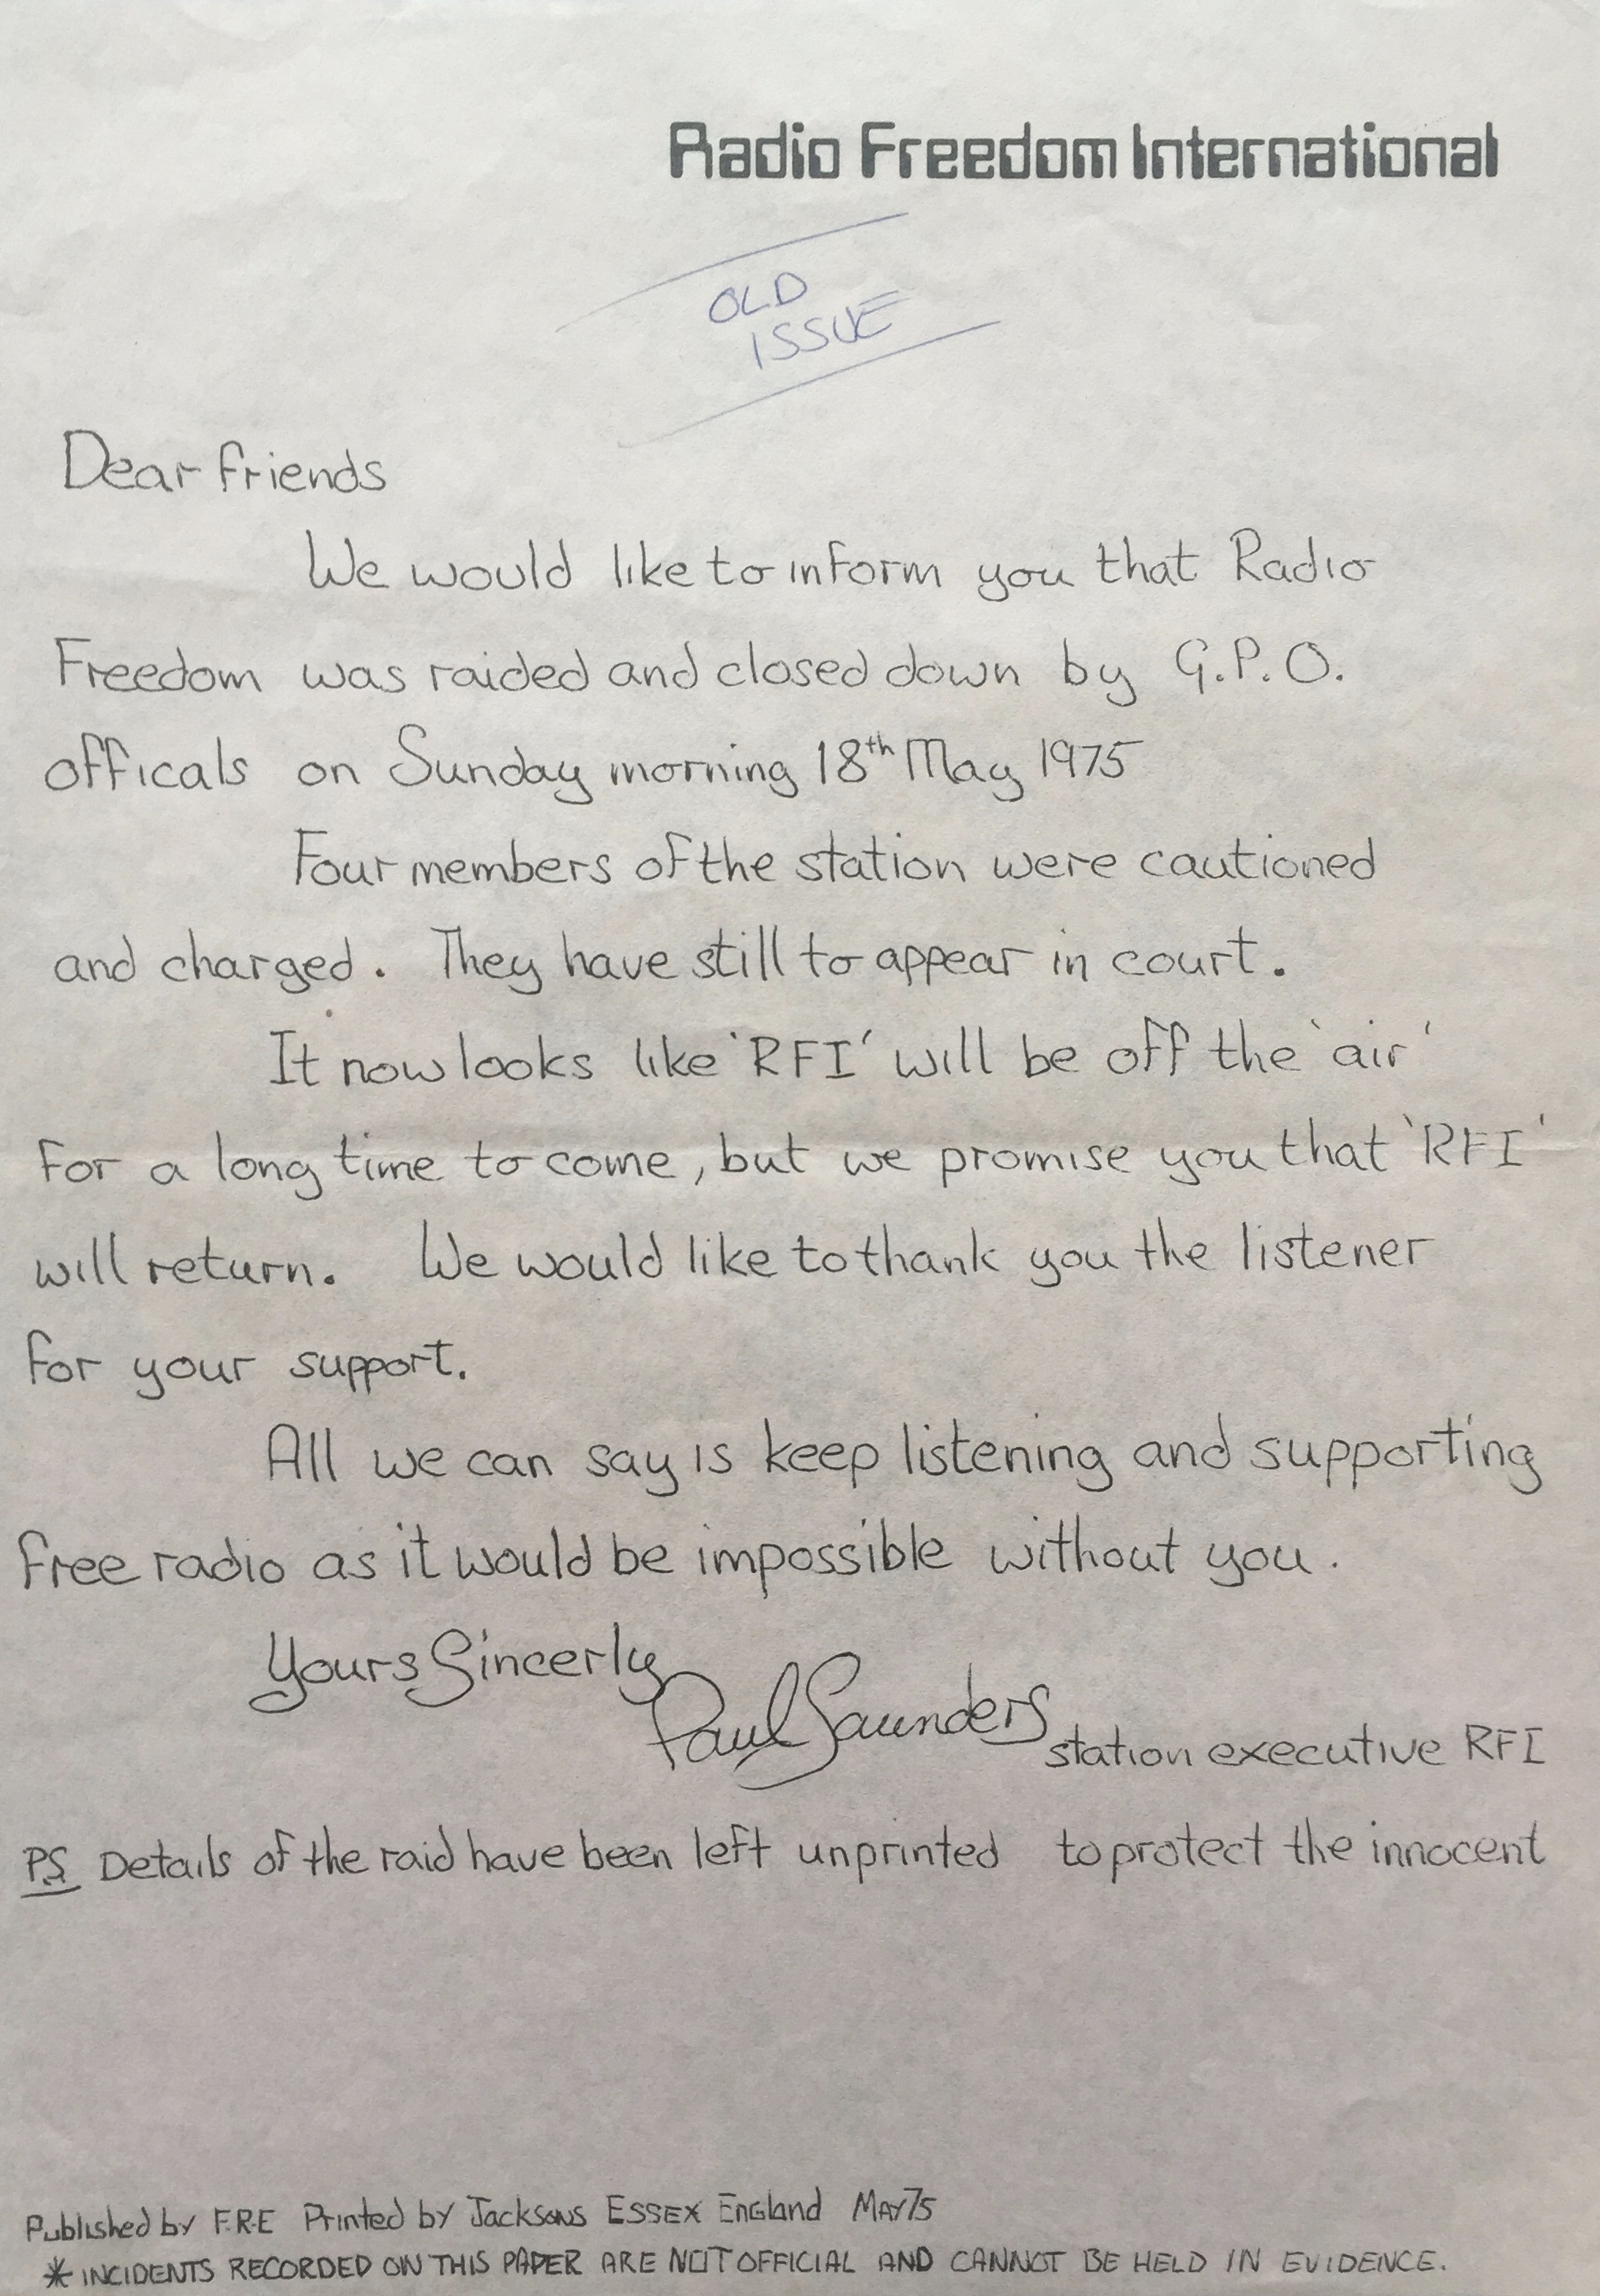 Radio Freedom International
OLD
ISSUE
Dear friends
We would like to inform you that Radio
Freedom was raided and closed down by G.P.O.
officals on Sunday morning 18th May 1975
Four members of the station were cautioned
and charged. They have still to appear in court.
It now looks like 'RFI' will be off the 'air'
for a long time to come, but we promise you that 'RFI'
will return. We would like to thank you the listener
for your support.
All we can say is keep listening and supporting
free radio as it would be impossible without you.
Yours Sincerly
Paul Saunders
station executive RFI
PS Details of the raid have been left unprinted to protect the innocent
Published by F.R.E Printed by Jacksons ESSEX ENGLAND MAY75
* INCIDENTS RECORDED ON THIS PAPER ARE NOT OFFICIAL AND CANNOT BE HELD IN EVIDENCE.